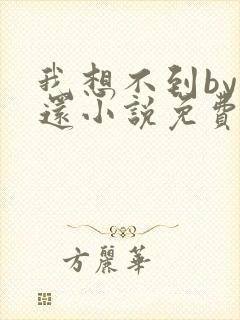 我想不到by
還小說免費
方麗華